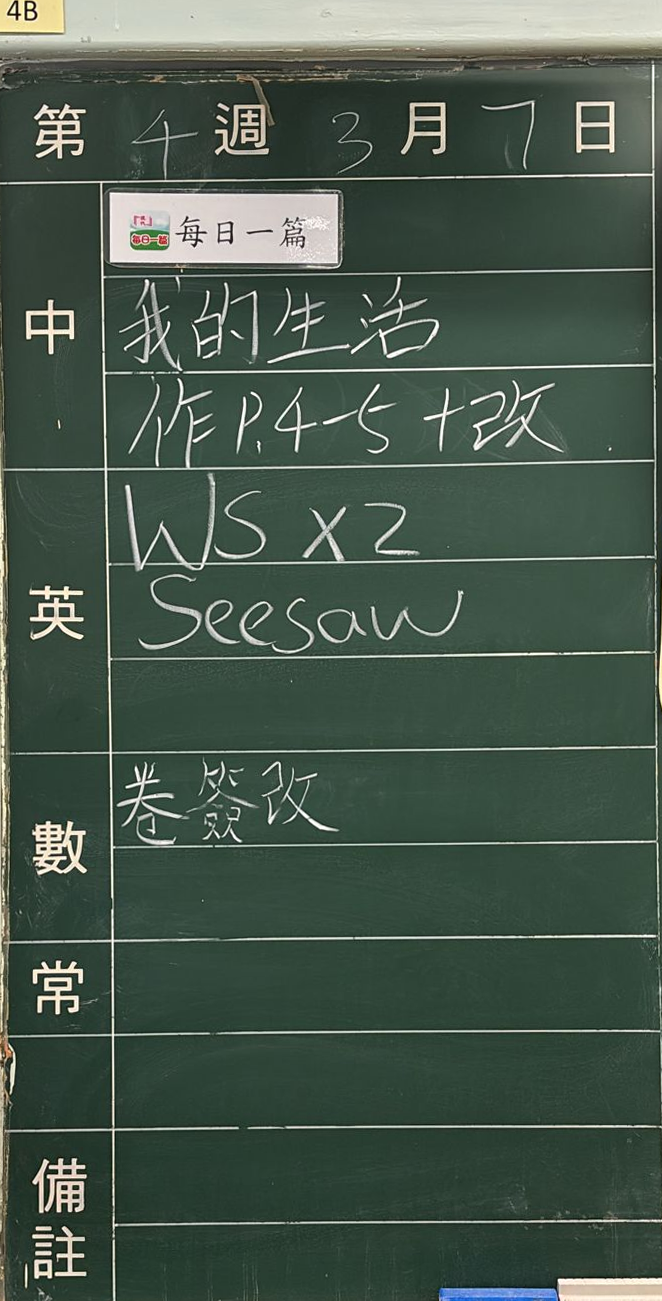 4B
第 4 週 3 月 7 日
中
每日一篇 每日一篇
我的生活
作 P.4-5 +改
英
WS x2
Seesaw
數
卷簽改
常
備註